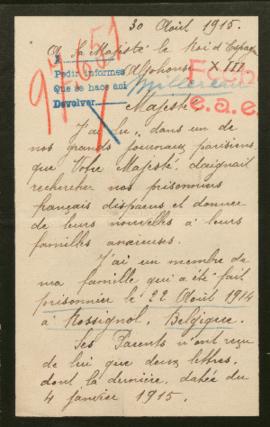 30 Août 1915.
A Sa Majesté le Roi d'Espagne
Alphonse XIII
Pedir informes
Que se hace así
Devolver
e.a.e.
Majesté
J'ai lu, dans un de
nos grands journaux parisiens,
que Votre Majesté, daignait
rechercher nos prisonniers
français disparus et donner
de leurs nouvelles à leurs
familles anxieuses.
J'ai un membre de
ma famille qui a été fait
prisonnier le 22 Août 1914
à Rossignol, Belgique.
Ses Parents n'ont reçu
de lui que deux lettres,
dont la dernière, datée du
4 janvier 1915.